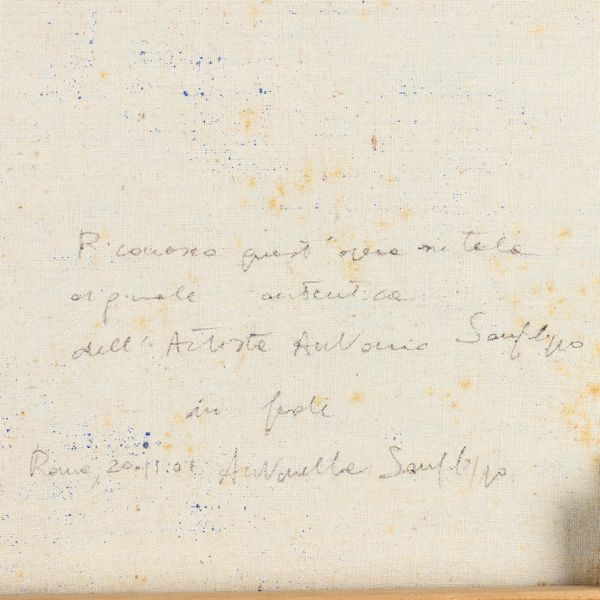 Riconosco quest'opera su tela
originale autentica
dell'Artista Antonio Sanfilippo
in fede
Roma, 20.11.01 Antonella Sanfilippo